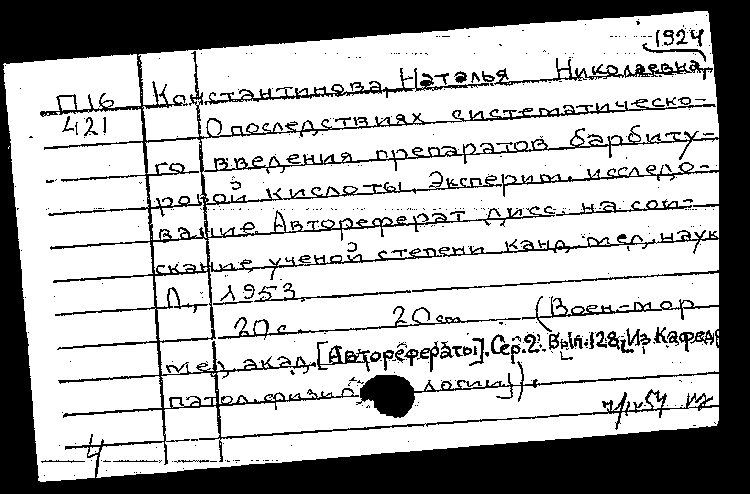 1924
П16 Константинова, Наталья Николаевна,
421 О последствиях систематическо-
го введения препаратов барбиту-
ровой кислоты. Эксперим. исследо-
вание. Автореферат дисс. на сои-
скание ученой степени канд. мед. наук
Л., 1953.
20 с. 20 см (Воен-мор
мед. акад. [Авторефераты]. Сер. 2. Вып. 128. Из Кафед
патол. физи логии]).
4